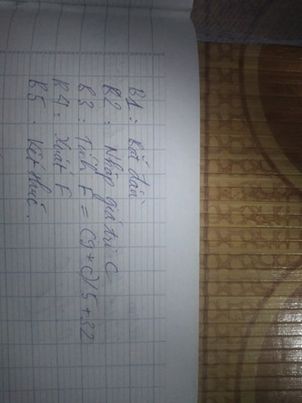 B1 : Bắt đầu
B2 : Nhập giá trị C
B3 : Tính F = (9*C)/5+32
B4 : Xuất F
B5 : Kết thúc.